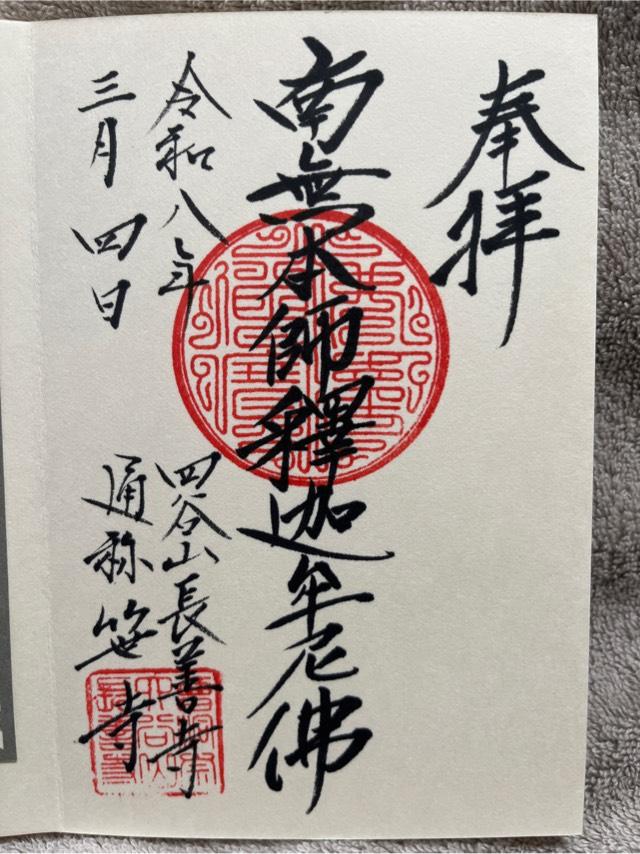 奉拝
南無本師釋迦牟尼佛
令和八年
三月四日
四谷山長善寺
通称笹寺